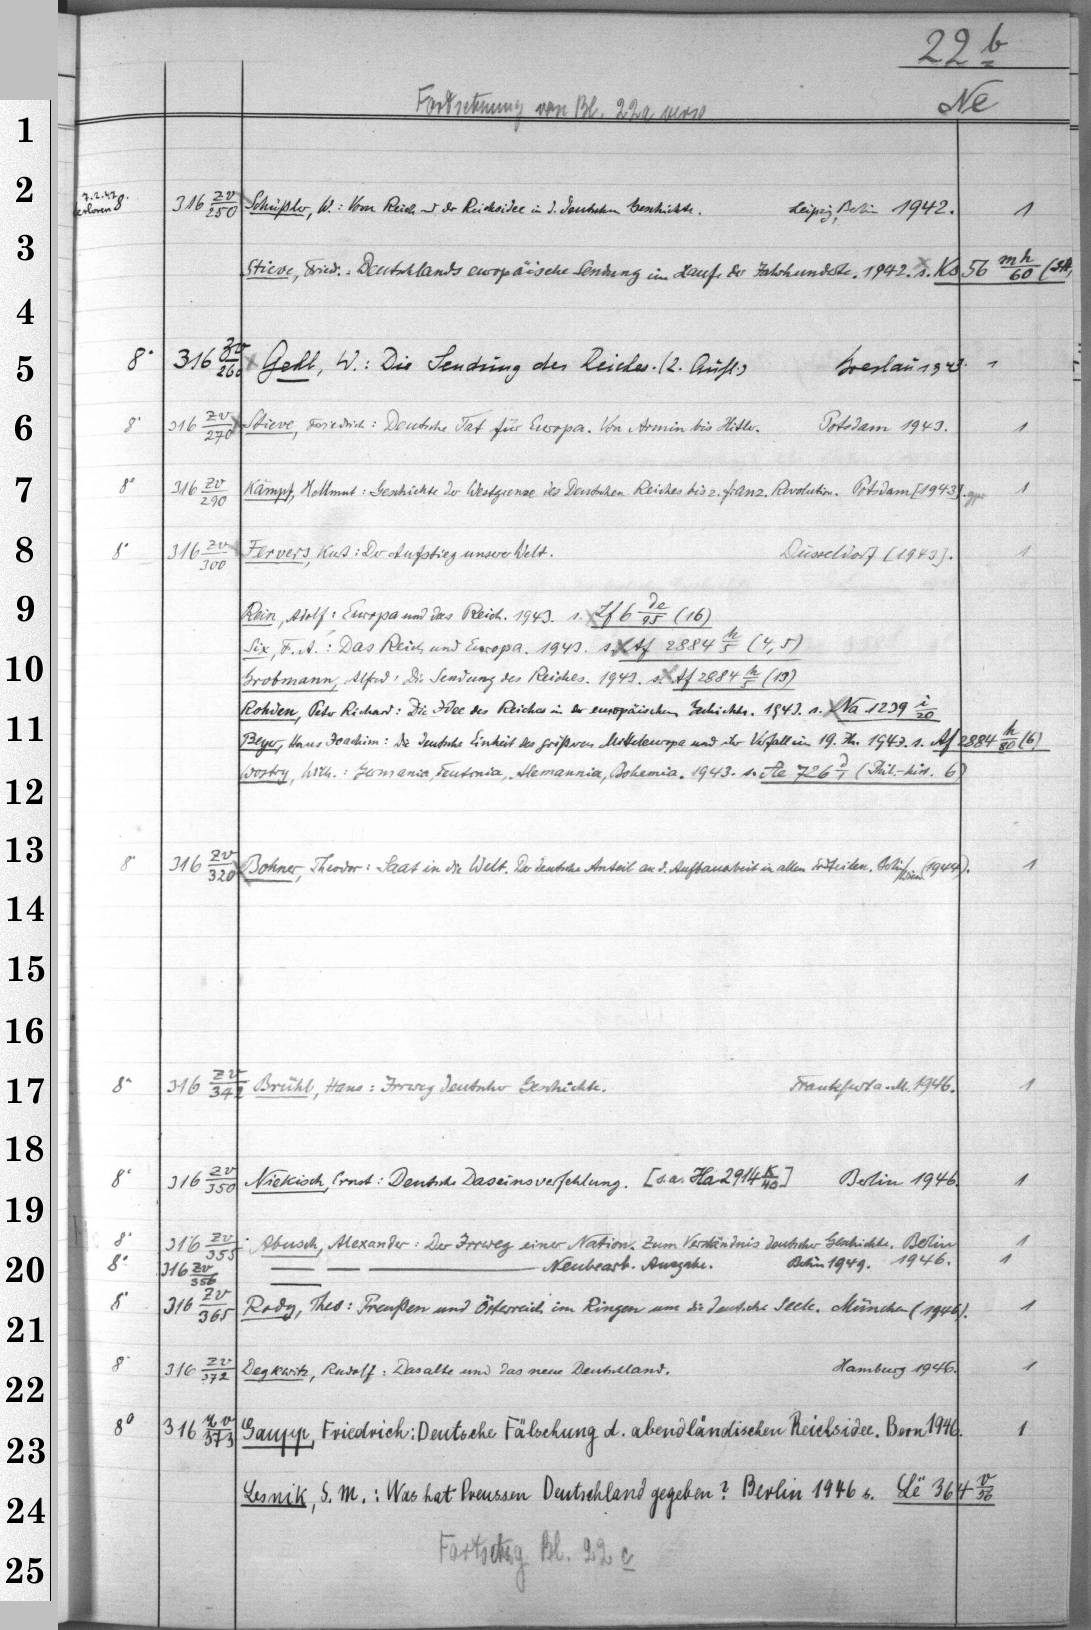 22 b
Ne
Fortsetzung von Bl. 22a verso
1
2
7.2.47.
verloren 8. 316 zv/250 Schüßler, W.: Vom Reich u. der Reichsidee in d. deutschen Geschichte. Leipzig, Berlin 1942. 1
3
Stieve, Fried.: Deutschlands europäische Sendung im Laufe der Jahrhunderte. 1942. s. Ks 56 mh/60
4
5
8° 316 zv/260 Gehl, W.: Die Sendung des Reiches. (2. Aufl.) Breslau 1943. 1
6
8° 316 zv/270 Stieve, Friedrich: Deutsche Tat für Europa. Von Armin bis Hitler. Potsdam 1943. 1
7
8° 316 zv/290 Kämpf, Hellmut: Geschichte der Westgrenze des Deutschen Reiches bis z. franz. Revolution. Potsdam [1943]. 1
8
8° 316 zv/300 Fervers, Kurt: Der Aufstieg unserer Welt. Düsseldorf [1943]. 1
9
Rein, Adolf: Europa und das Reich. 1943. s. Zf 6 de/95 (16)
Six, F. A.: Das Reich und Europa. 1943. s. Af 2884 h/5 (4,5)
10
Grobmann, Alfred: Die Sendung des Reiches. 1943. s. Af 2884 h/5 (19)
Rohden, Peter Richard: Die Idee des Reiches in der europäischen Geschichte. 1943. s. Na 1239 i/20
11
Beyer, Hans Joachim: die deutsche Einheit des größeren Mitteleuropa und ihr Verfall im 19. Jh. 1943. s. Af 2884 h/80 (6)
Wostry, Wilh.: Germania, Teutonia, Alemannia, Bohemia. 1943. s. Ae 726 d/1 (Phil.-hist. 6)
12
13
8° 316 zv/320 Bohner, Theodor: Saat in die Welt. Der deutsche Anteil an d. Aufbauarbeit in allen Erdteilen. Berlin/Wien (1944). 1
14
15
16
17
8° 316 zv/342 Brühl, Hans: Irrweg deutscher Geschichte. Frankfurt a. M. 1946. 1
18
8° 316 zv/350 Niekisch, Ernst: Deutsche Daseinsverfehlung. [s. a. Ha 2914 k/40] Berlin 1946. 1
19
8° 316 zv/355 Abusch, Alexander: Der Irrweg einer Nation. Zum Verständnis deutscher Geschichte. Berlin 1
20
8° 316 zv/356 — — — Neubearb. Ausgabe. Berlin 1949. 1946. 1
8° 316 zv/365 Rody, Theo: Preußen und Österreich im Ringen um die deutsche Seele. München (1946). 1
21
8° 316 zv/372 Degkwitz, Rudolf: Das alte und das neue Deutschland. Hamburg 1946. 1
22
8° 316 zv/373 Gaupp, Friedrich: Deutsche Fälschung d. abendländischen Reichsidee. Bern 1946. 1
23
Lesnik, S. M.: Was hat Preussen Deutschland gegeben? Berlin 1946 s. Lë 364 v/56
24
Fortsetzg Bl. 22 c
25